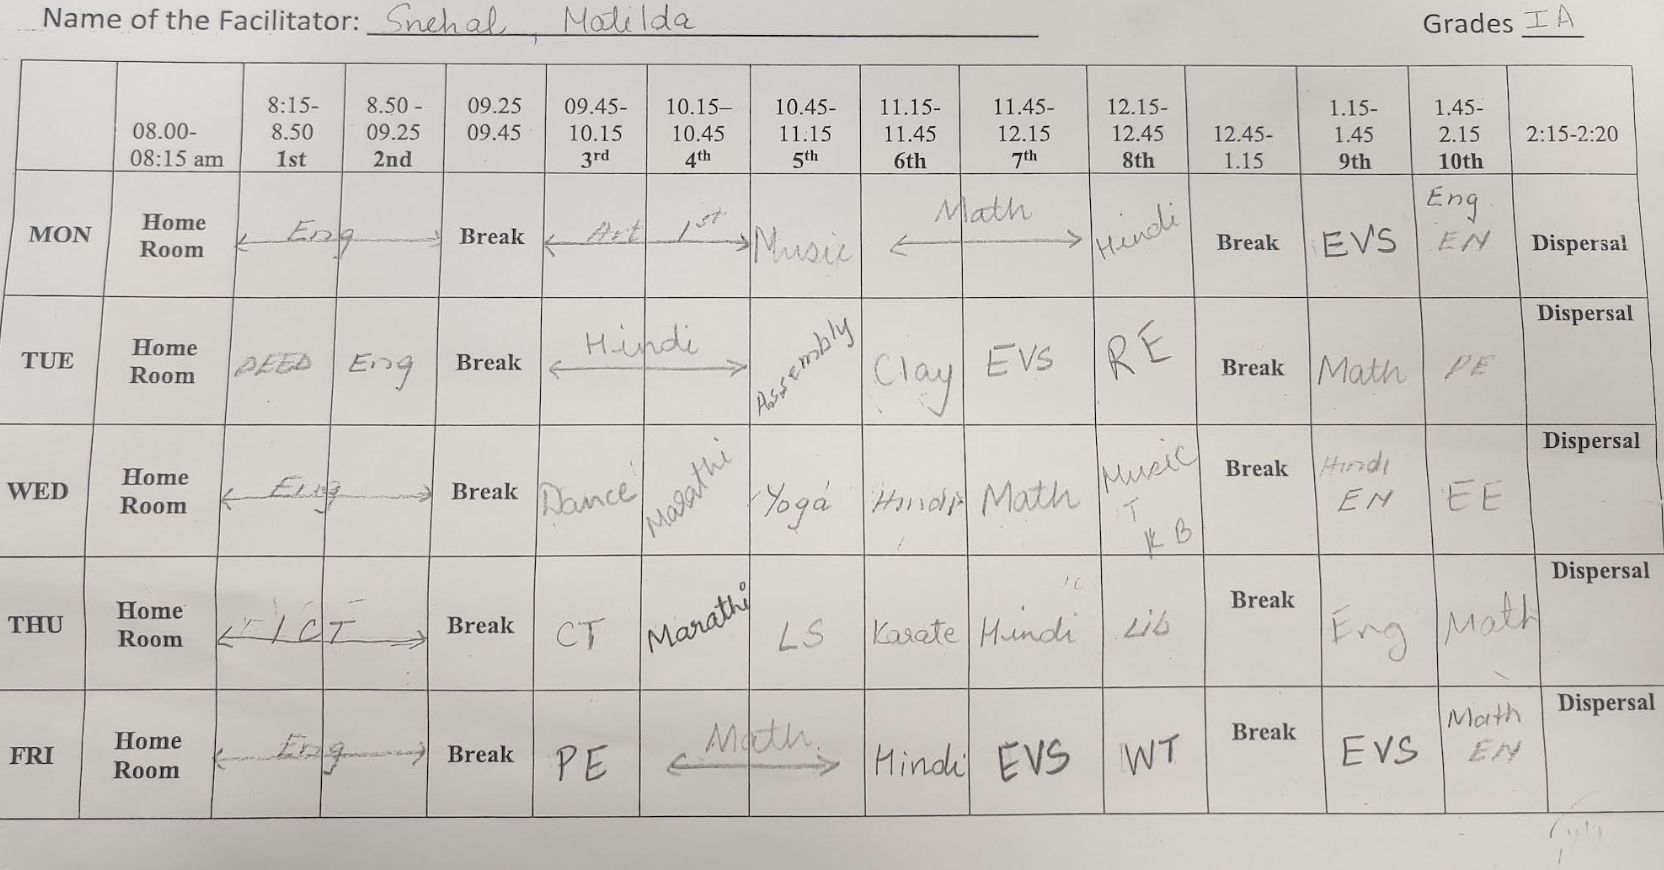 Name of the Facilitator: Snehal, Matilda Grades IA
08.00-08:15 am 8:15-8.50 1st 8.50 - 09.25 2nd 09.25 09.45 09.45-10.15 3rd 10.15–10.45 4th 10.45-11.15 5th 11.15-11.45 6th 11.45-12.15 7th 12.15-12.45 8th 12.45-1.15 1.15-1.45 9th 1.45-2.15 10th 2:15-2:20
MON Home Room Eng Break Art 1st Music Math Hindi Break EVS Eng EN Dispersal
TUE Home Room DEED Eng Break Hindi Assembly Clay EVS RE Break Math PE Dispersal
WED Home Room Eng Break Dance Marathi Yoga Hindi Math Music T KB Break Hindi EN EE Dispersal
THU Home Room ICT Break CT Marathi LS Karate Hindi Lib Break Eng Math Dispersal
FRI Home Room Eng Break PE Math Hindi EVS WT Break EVS Math EN Dispersal